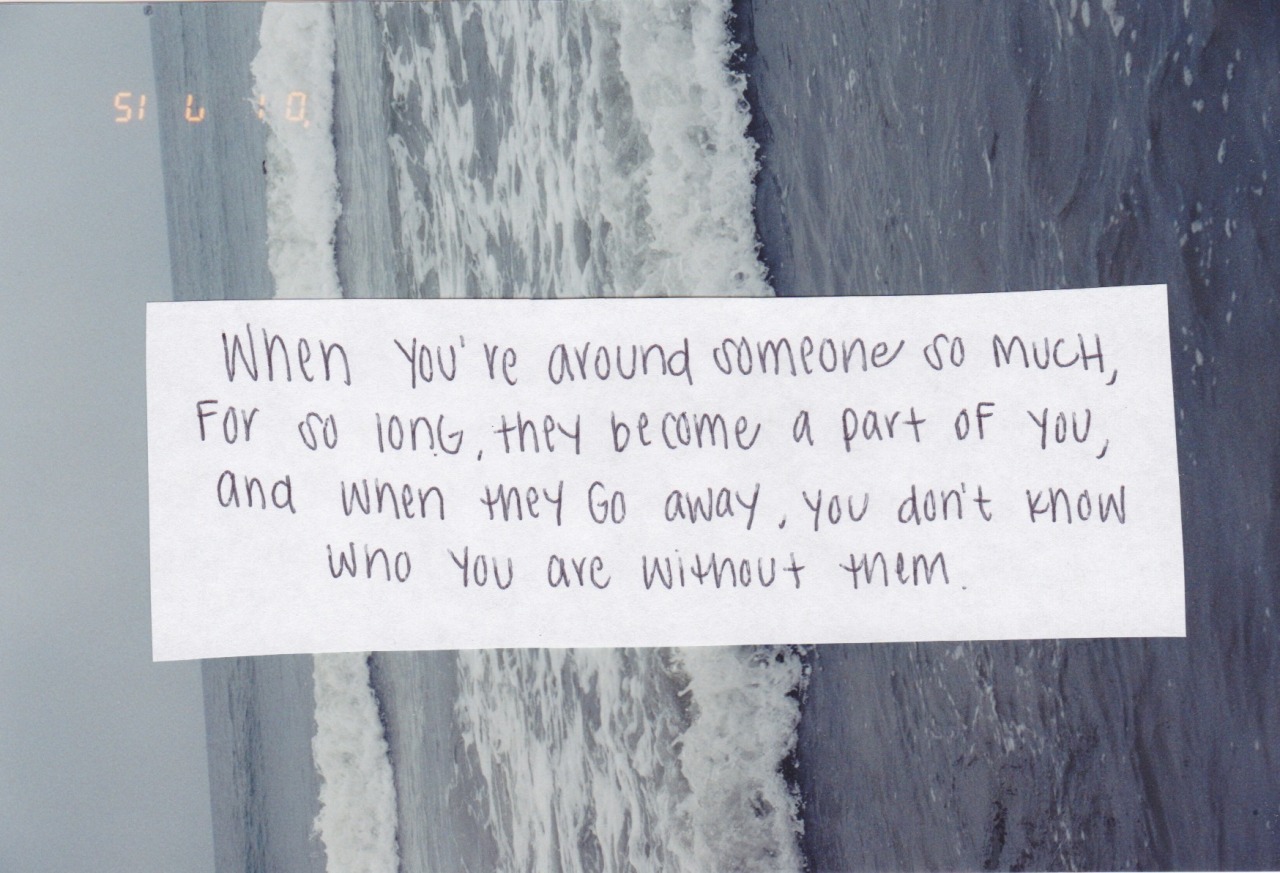 '01 7 15
When you're around someone so much,
For so long, they become a part of you,
and when they Go away, you don't know
who you are without them.